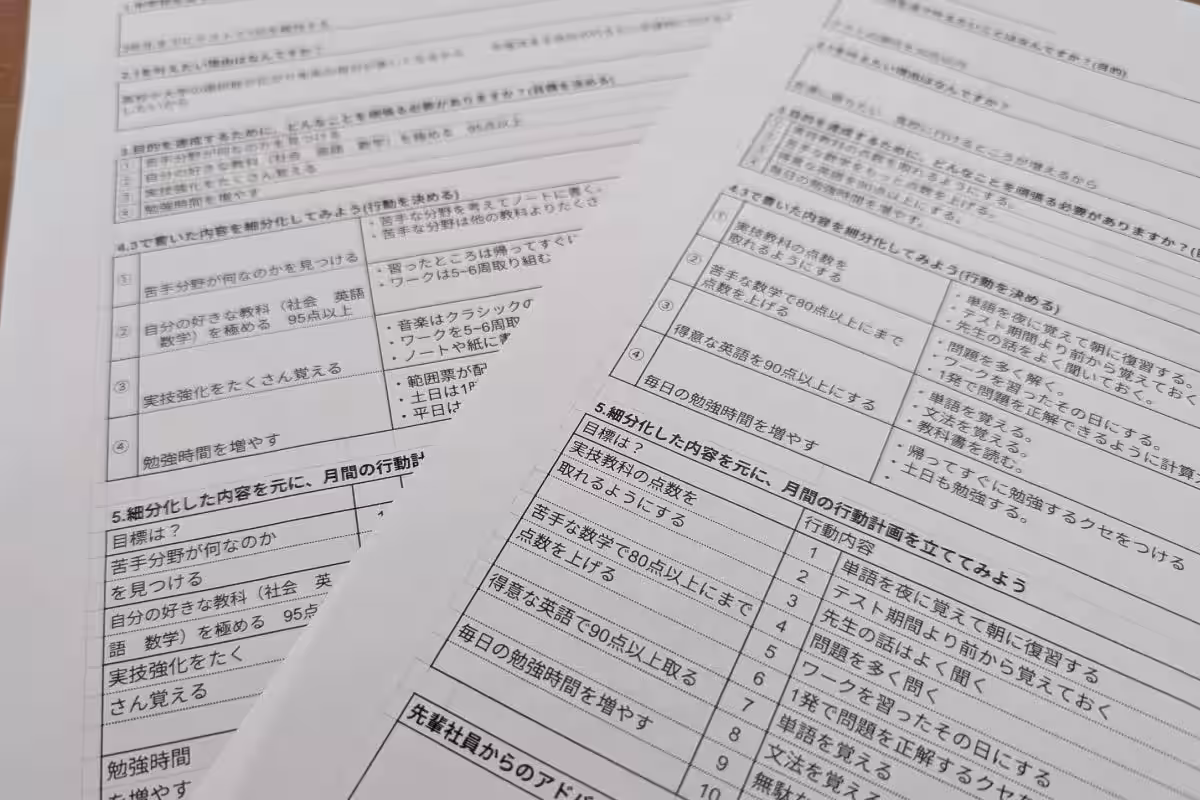 2.1を叶えたい理由はなんですか？
したいから
3.目的を達成するために、どんなことを頑張る必要がありますか？(目標を決める)
① 苦手分野が何なのかを見つける
② 自分の好きな教科（社会　英語　数学）を極める　95点以上
③ 実技強化をたくさん覚える
④ 勉強時間を増やす
4.3で書いた内容を細分化してみよう(行動を決める)
① 苦手分野が何なのかを見つける
・苦手な分野を考えてノートに書く。
・苦手な分野は他の教科よりたくさ
② 自分の好きな教科（社会　英語
数学）を極める　95点以上
・習ったところは帰ってすぐに
・ワークは5~6周取り組む
③ 実技強化をたくさん覚える
・音楽はクラシックの
・ワークを5~6周取
・ノートや紙に書
④ 勉強時間を増やす
・範囲票が配
・土日は1時
・平日は
5.細分化した内容を元に、月間の行動計
目標は？
苦手分野が何なのか
を見つける
自分の好きな教科（社会　英
語　数学）を極める　95点
実技強化をたく
さん覚える
勉強時間
を増やす
2.1を叶えたい理由はなんですか？
3.目的を達成するために、どんなことを頑張る必要がありますか？
① 実技教科の点数を取れるようにする。
② 苦手な数学をもっと点数を上げる。
③ 得意な英語を90点以上にする。
④ 毎日の勉強時間を増やす。
4.3で書いた内容を細分化してみよう(行動を決める)
① 実技教科の点数を
取れるようにする
・単語を夜に覚えて朝に復習する。
・テスト期間より前から覚えておく
・先生の話をよく聞いておく。
② 苦手な数学で80点以上にまで
点数を上げる
・問題を多く解く。
・ワークを習ったその日にする。
・1発で問題を正解できるように計算
③ 得意な英語を90点以上にする
・単語を覚える。
・文法を覚える。
・教科書を読む。
④ 毎日の勉強時間を増やす
・帰ってすぐに勉強するクセをつける
・土日も勉強する。
・
5.細分化した内容を元に、月間の行動計画を立ててみよう
目標は？
行動内容
実技教科の点数を
取れるようにする
苦手な数学で80点以上にまで
点数を上げる
得意な英語で90点以上取る
毎日の勉強時間を増やす
1 単語を夜に覚えて朝に復習する
2 テスト期間より前から覚えておく
3 先生の話はよく聞く
4 問題を多く問く
5 ワークを習ったその日にする
6 1発で問題を正解するクセを
7 単語を覚える
8 文法を覚える
9 無駄な
10
先輩社員からのアドバ